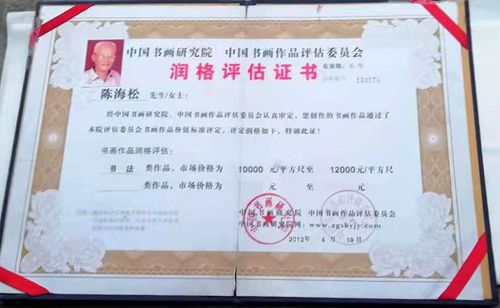 中国书画研究院 中国书画作品评估委员会
润格评估证书
陈海松 先生/女士：
经中国书画研究院、中国书画作品评估委员会认真审定，您创作的书画作品通过了
本院评估委员会书画作品价值标准评定，评定润格如下，特颁此证！
书画作品润格评估：
书 法 类作品，市场价格为 10000 元/平方尺至 12000元/平方尺
类作品，市场价格为 元 至 元
中国书画研究院 中国书画作品评估委员会
中国书画研究院网：www.zgshyjy.com
2013年 4 月 19日